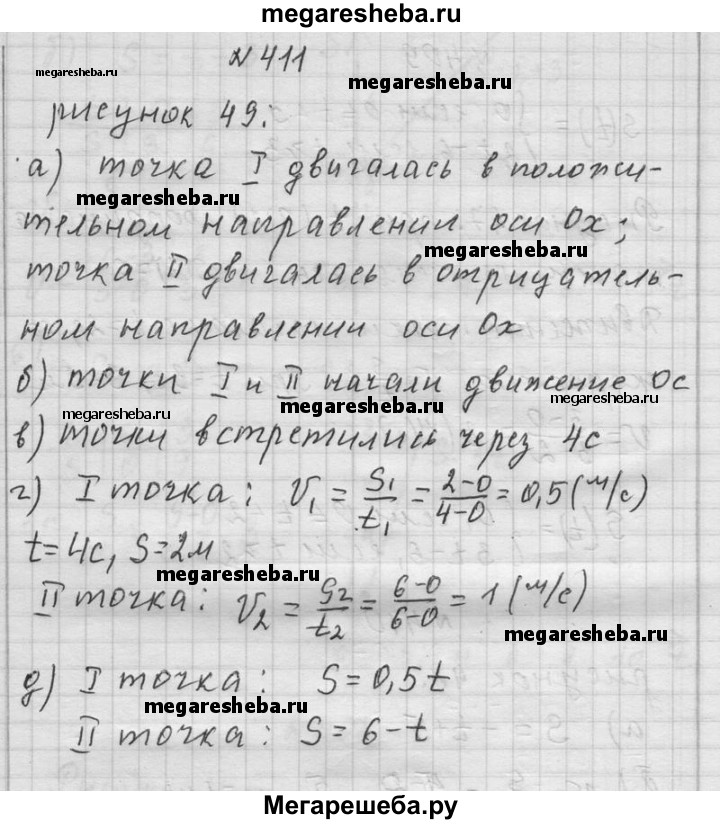 megaresheba.ru
№ 411
megaresheba.ru
megaresheba.ru
рисунок 49:
а) точка I двигалась в положи-
megaresheba.ru
тельном направлении оси Ox;
megaresheba.ru
точка II двигалась в отрицатель-
ном направлении оси Ox
б) точки I и II начали движение 0с
megaresheba.ru
megaresheba.ru
megaresheba.ru
в) точки встретились через 4с
г) I точка: V₁ = S₁/t₁ = 2-0/4-0 = 0,5 (м/с)
t=4с, S=2м
megaresheba.ru
II точка: V₂ = S₂/t₂ = 6-0/6-0 = 1 (м/с)
megaresheba.ru
д) I точка: S=0,5t
megaresheba.ru
II точка: S=6-t
Мегарешеба.ру